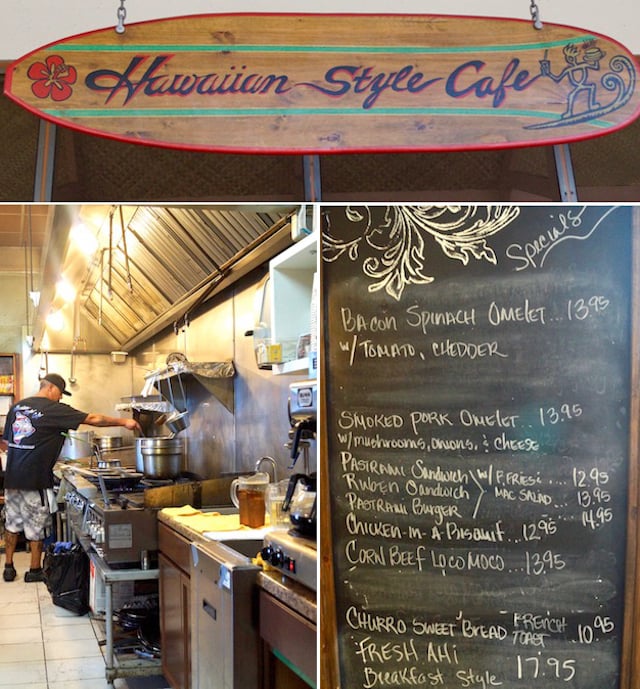 Hawaiian Style Cafe
Specials
BACON SPINACH OMELET... 13.95
w/ TOMATO, CHEDDER
SMOKED PORK OMELET.. 13.95
w/ mushrooms, onions, & CHEESE
PASTRAMI Sandwich w/ F. FRIES & ... 12.95
RUBEN Sandwich MAC SALAD... 13.95
PASTRAMI BURGER ... 14.95
CHICKEN-IN-A BISCUIT... 12.95
CORN BEEF LOCO MOCO... 13.95
CHURRO SWEET BREAD FRENCH TOAST ..10.95
FRESH AHI
Breakfast Style 17.95